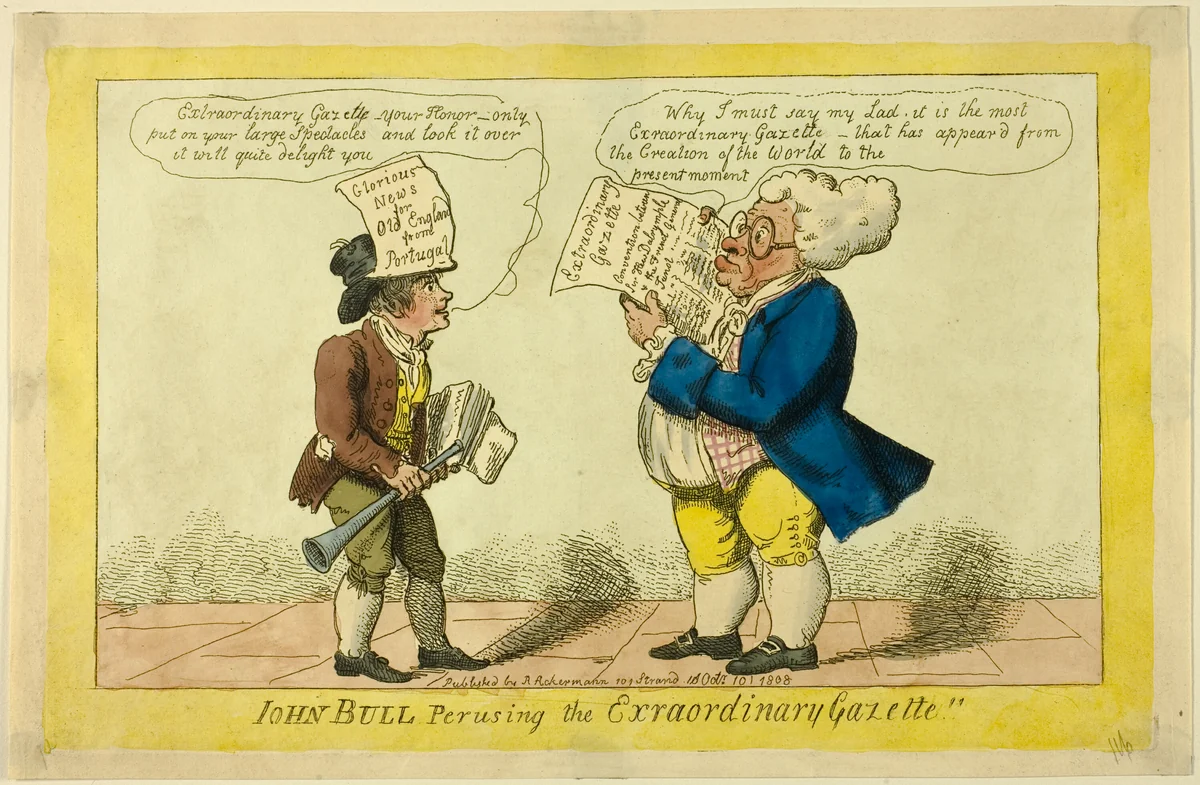 Extraordinary Gazette - your Honor - only
put on your large Spectacles and look it over
it will quite delight you
Why I must say my Lad, it is the most
Exraordinary Gazette - that has appeard from
the Creation of the World to the
present moment
Glorious
News
for
Old England
from
Portugal
Extraordinary
Gazette
Convention between
Sir Hew Dalrymple
& the French General
Junot
Published by R Ackermann 101 Strand
1808
IOHN BULL Perusing the Exraordinary Gazette!!